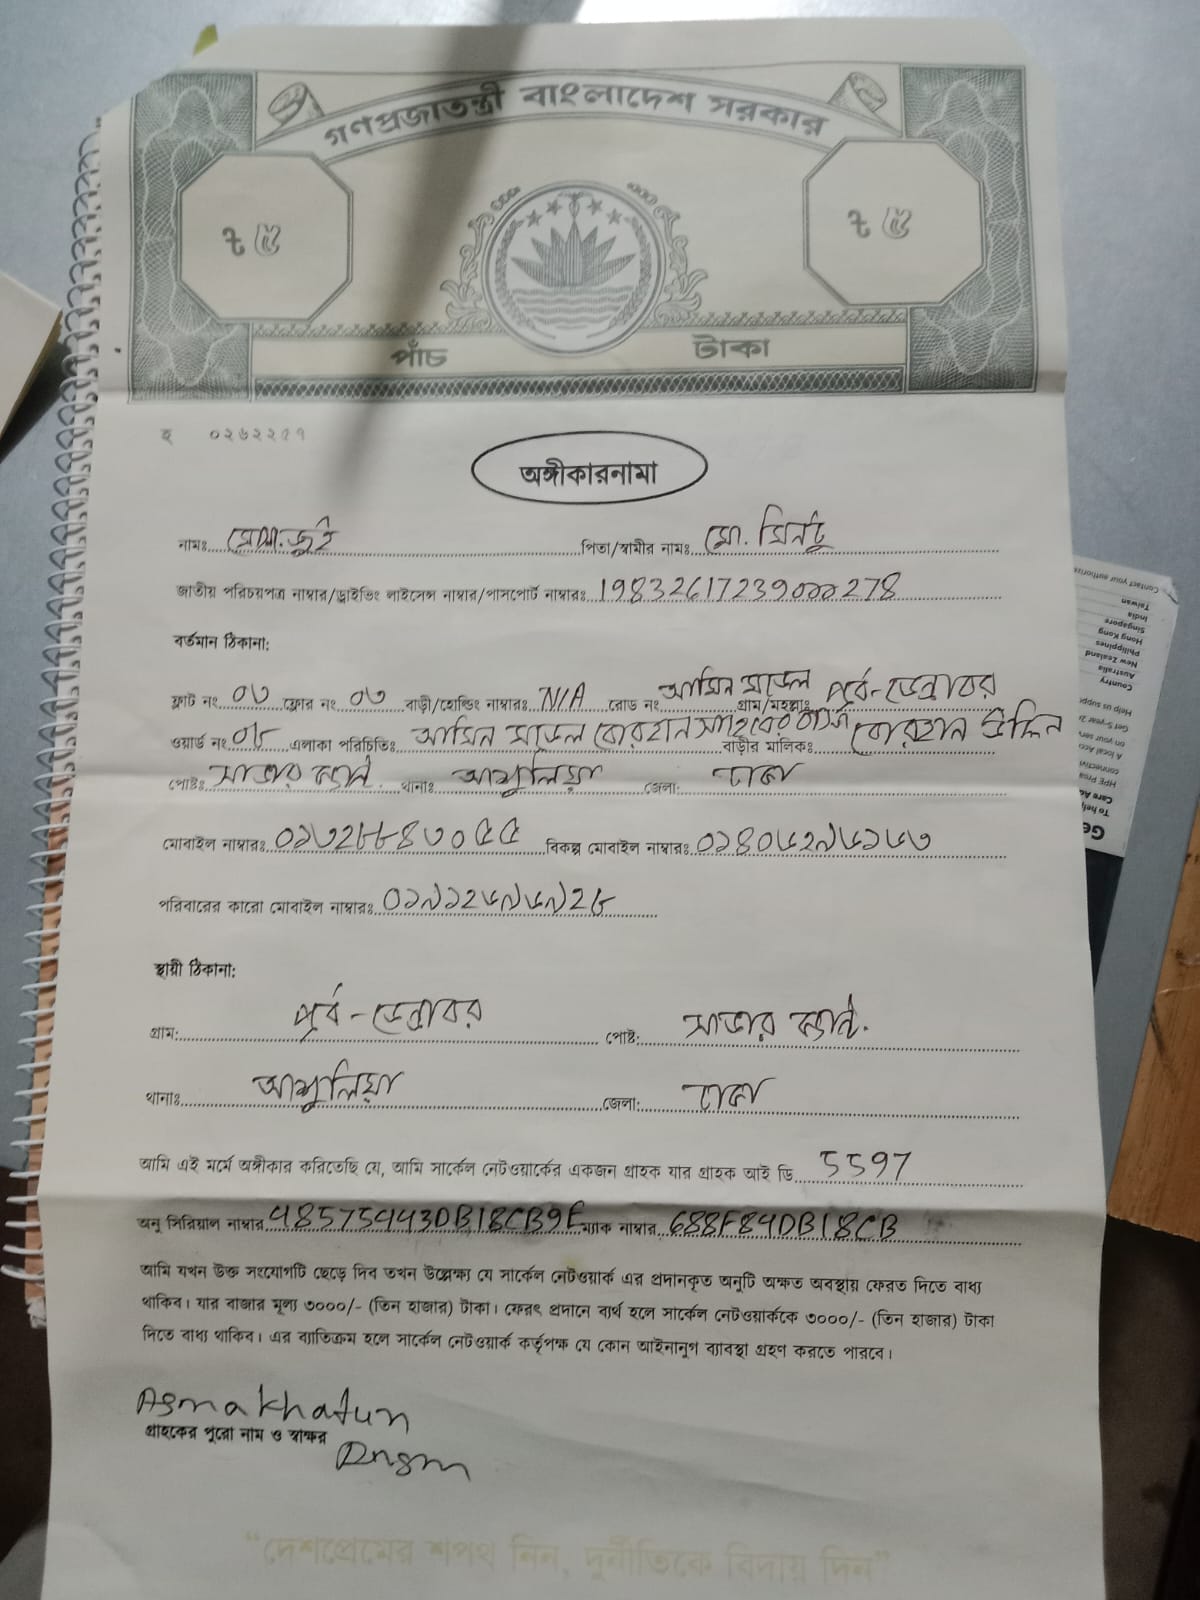 গণপ্রজাতন্ত্রী বাংলাদেশ সরকার
৳ ৫ ৳ ৫
পাঁচ টাকা
হ ০২৬২২৫৭
অঙ্গীকারনামা
নামঃ মোসা. জুই পিতা/স্বামীর নামঃ মো. মিন্টু
জাতীয় পরিচয়পত্র নাম্বার/ড্রাইভিং লাইসেন্স নাম্বার/পাসপোর্ট নাম্বারঃ 19832617239000278
বর্তমান ঠিকানা:
ফ্লাট নং ০৩ ফ্লোর নং ০৩ বাড়ী/হোল্ডিং নাম্বারঃ N/A রোড নং আমিন মডেল গ্রাম/মহল্লাঃ পূর্ব-ডেন্ডাবর
ওয়ার্ড নং ০৮ এলাকা পরিচিতিঃ আমিন মডেল বোরহান সাহেবের বাসা বাড়ীর মালিকঃ বোরহান উদ্দিন
পোষ্টঃ সাভার ক্যান্ট. থানাঃ আশুলিয়া জেলা: ঢাকা
মোবাইল নাম্বারঃ ০১৩২৮৮৪৩০৫৫ বিকল্প মোবাইল নাম্বারঃ
পরিবারের কারো মোবাইল নাম্বারঃ
স্থায়ী ঠিকানা:
গ্রাম: পূর্ব-ডেন্ডাবর পোষ্ট: সাভার ক্যান্ট.
থানাঃ আশুলিয়া জেলা: ঢাকা
আমি এই মর্মে অঙ্গীকার করিতেছি যে, আমি সার্কেল নেটওয়ার্কের একজন গ্রাহক যার গ্রাহক আই ডি 5597
অনু সিরিয়াল নাম্বার 48575443DB18CB9E ম্যাক নাম্বার 688F84DB18CB
আমি যখন উক্ত সংযোগটি ছেড়ে দিব তখন উল্লেক্ষ্য যে সার্কেল নেটওয়ার্ক এর প্রদানকৃত অনুটি অক্ষত অবস্থায় ফেরত দিতে বাধ্য
থাকিব। যার বাজার মূল্য ৩০০০/- (তিন হাজার) টাকা। ফেরৎ প্রদানে ব্যর্থ হলে সার্কেল নেটওয়ার্ককে ৩০০০/- (তিন হাজার) টাকা
দিতে বাধ্য থাকিব। এর ব্যাতিক্রম হলে সার্কেল নেটওয়ার্ক কর্তৃপক্ষ যে কোন আইনানুগ ব্যাবস্থা গ্রহণ করতে পারবে।
Asma Khatun
গ্রাহকের পুরো নাম ও স্বাক্ষর
"দেশপ্রেমের শপথ নিন, দুর্নীতিকে বিদায় দিন"
Contact your authoriz
Taiwan
India
Singapore
Hong Kong
Philippines
New Zealand
Australia
Country
Help us supp